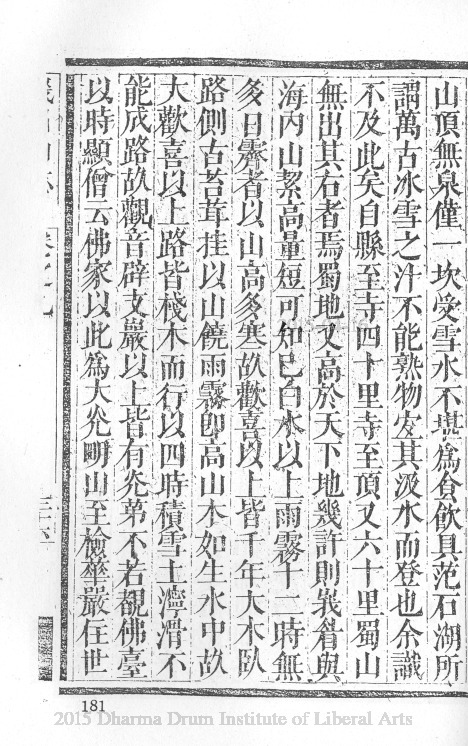 山頂無泉僅一坎受雪水不堪為食飲具范石湖所
謂萬古冰雪之汁不能熟物宜其汲水而登也余識
不及此矣自縣至寺四十里寺至頂又六十里蜀山
無出其右者焉蜀地又高於天下地幾許則峩眉與
海內山絜高量短可知已白水以上雨霧十二時無
多日霽者以山高多寒故歡喜以上皆千年大木臥
路側古苔茸挂以山饒雨霧即高山木如生水中故
大歡喜以上路皆棧木而行以四時積雪土濘滑不
能成路故觀音辟支巖以上皆有光第不若覩佛臺
以時顯僧云佛家以此為大光明山至檢華嚴住世
峨眉山志 卷之九
三六
181
2015 Dharma Drum Institute of Liberal Arts